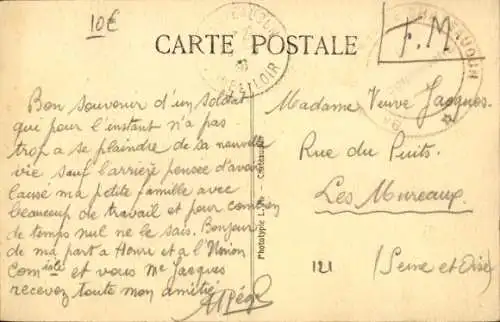 10€
CARTE POSTALE
F.M
CHATEAUDUN
EURE ET LOIR
Bon souvenir d'un soldat
que pour l'instant n'a pas
trop a se plaindre de sa nouvelle
vie sauf l'arrière pensee d'avoir
laissé ma petite famille avec
beaucoup de travail et pour combien
de temps nul ne le sais. Bonjour
de ma part a Henri et a l'Union
Comiale et vous Me Jacques
recevez toute mon amitié
Madame Veuve Jacques
Rue du Puits.
Les Mureaux.
(Seine et Oise)
121
Phototypie L